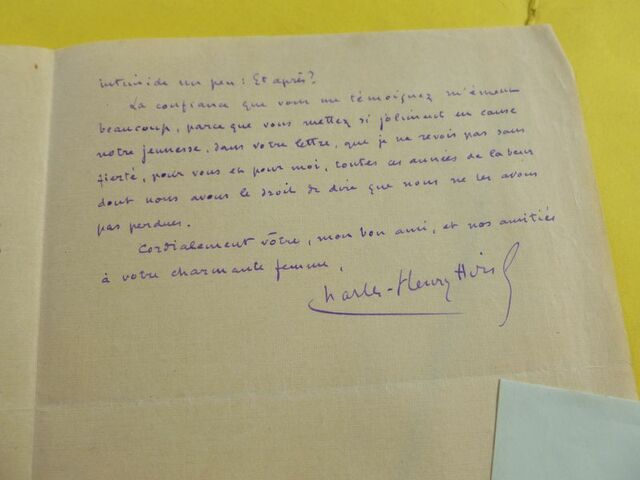 intimide un peu : Et après ?
La confiance que vous me témoignez m'émeut
beaucoup, parce que vous mettez si joliment en cause
notre jeunesse, dans votre lettre, que je ne revois pas sans
fierté, pour vous et pour moi, toutes ces années de labeur
dont nous avons le droit de dire que nous ne les avons
pas perdues.
Cordialement vôtre, mon bon ami, et nos amitiés
à votre charmante femme,
Charles-Henry Hirsch